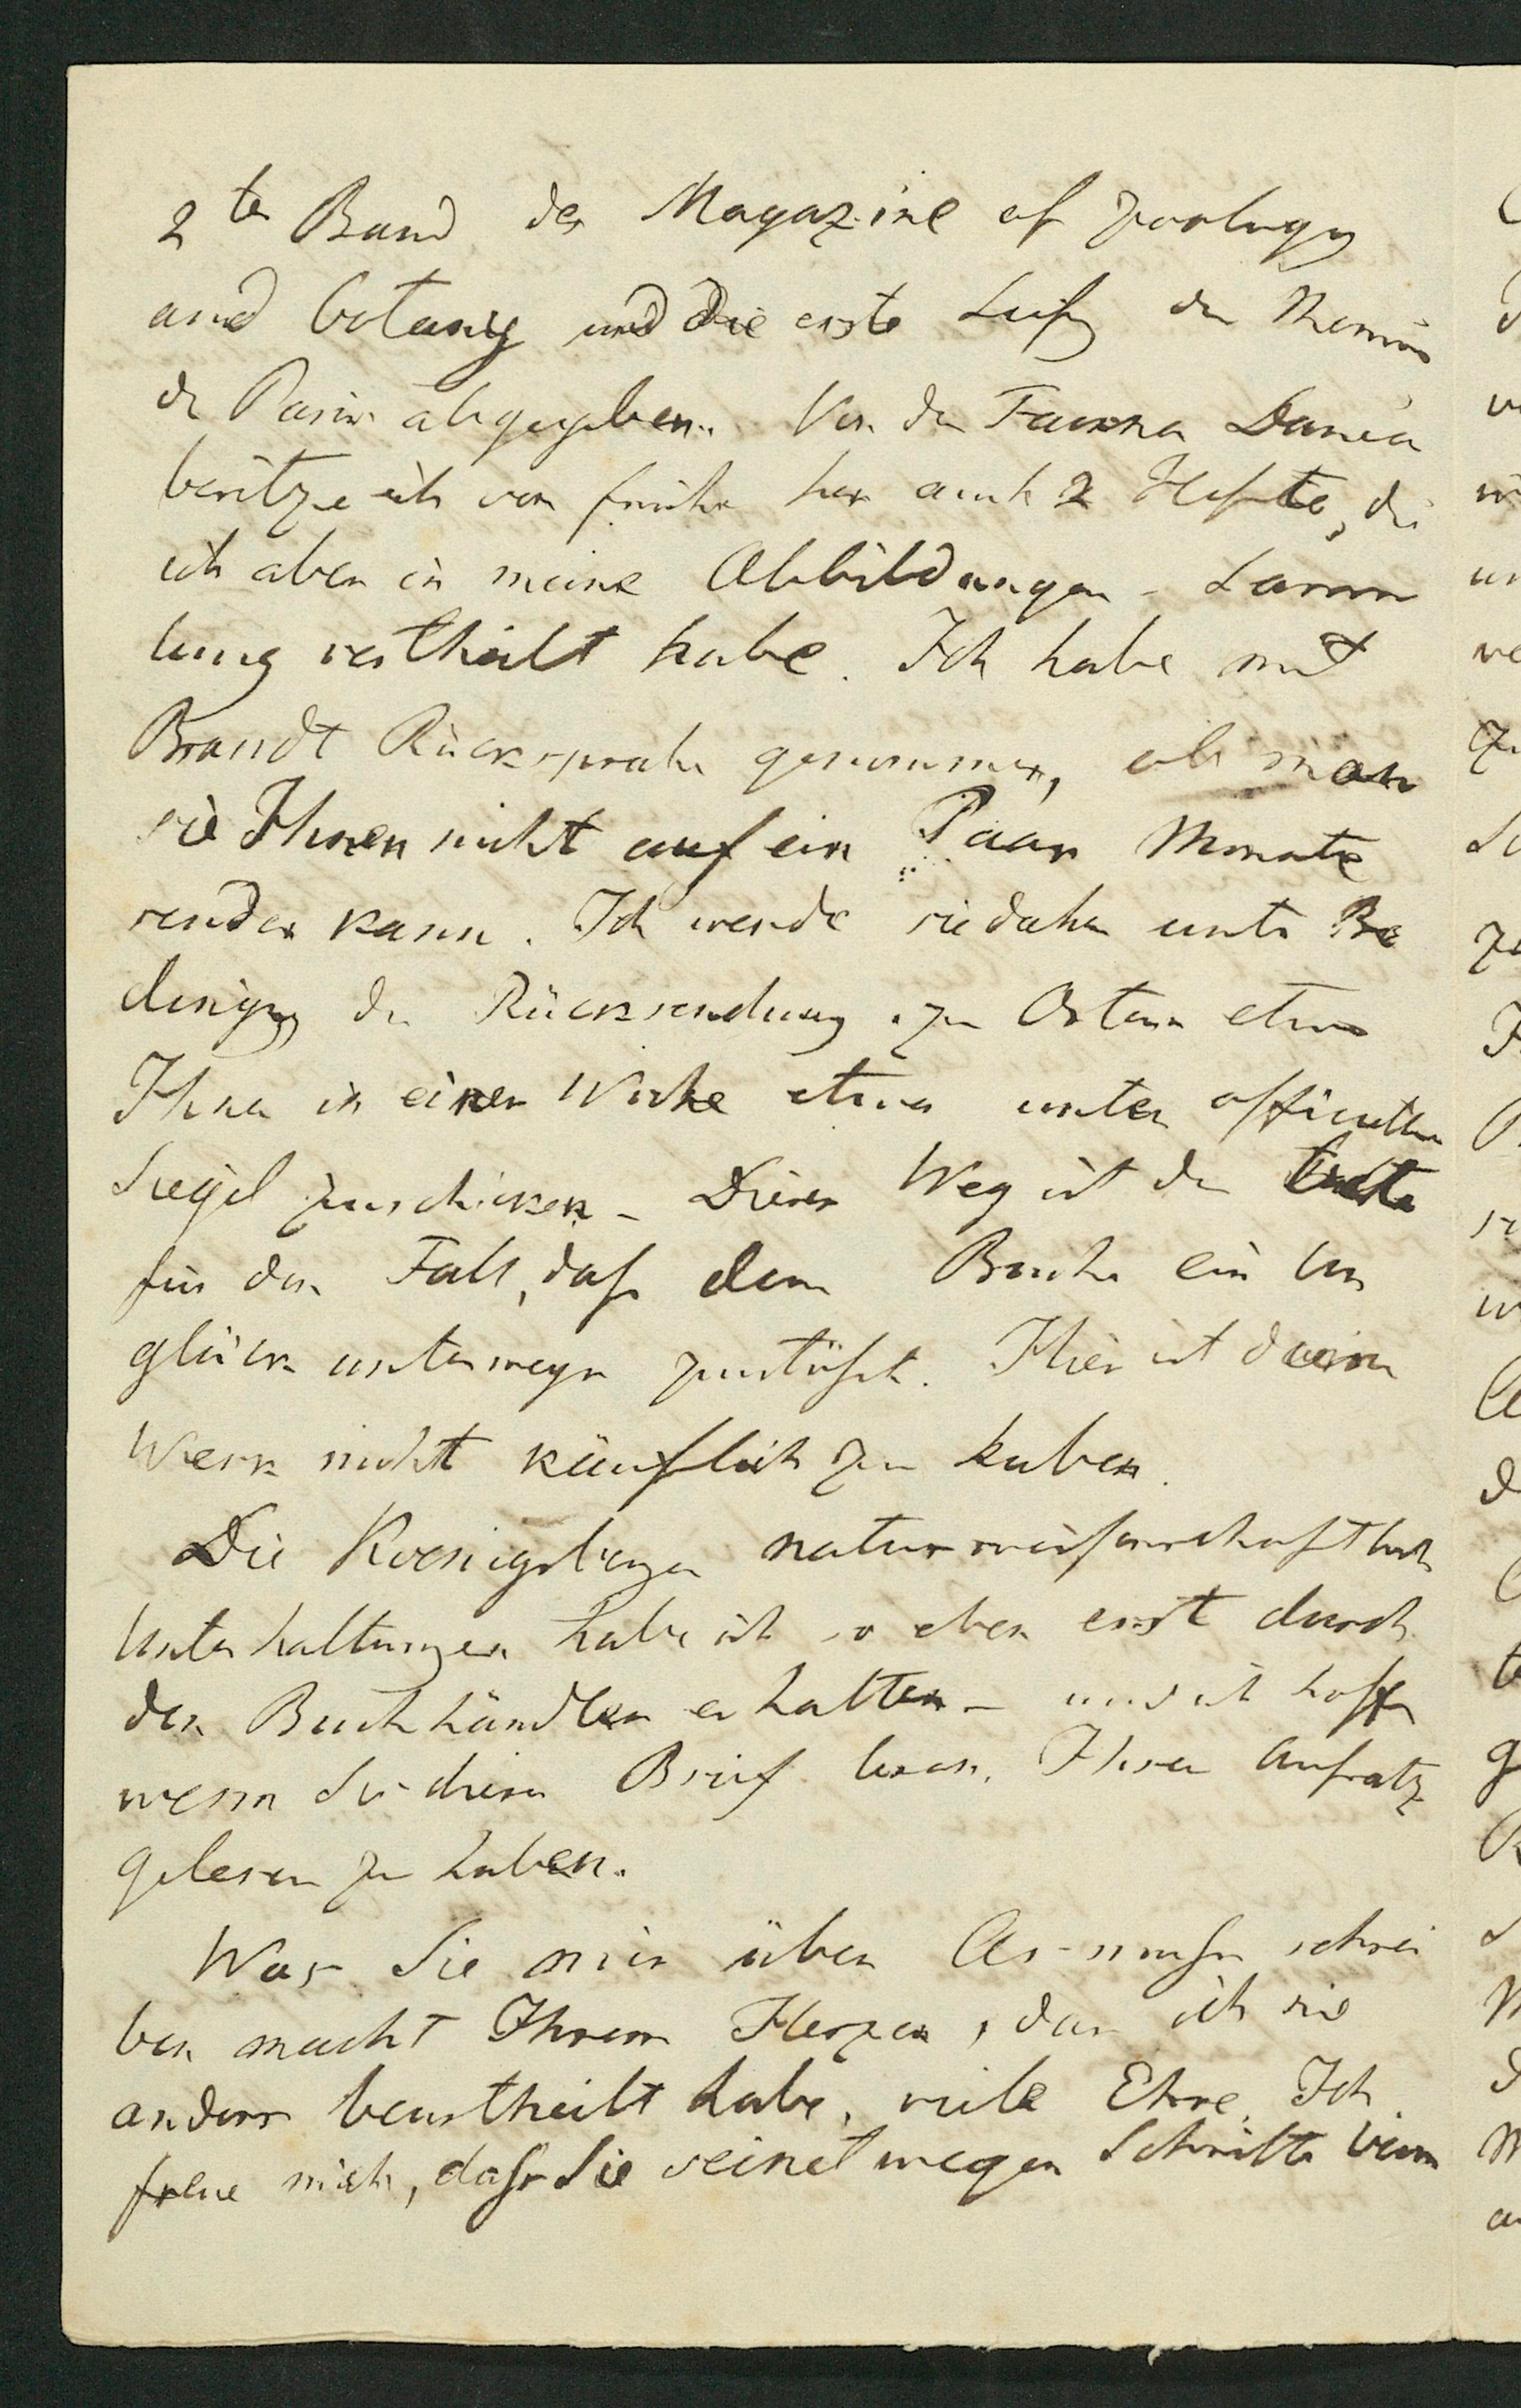 2ten Band des Magazine of zoology
and botany und die erste Liefg der Memoirs
de Paris abgegeben. Von der Fauna Danica
besitze ich von früher her auch 2 Hefte, die
ich aber in meine Abbildungen-Samm
lung vertheilt habe. Ich habe mit
Brandt Rücksprache genommen, ob man
sie Ihnen nicht auf ein Paar Monate
senden kann. Ich werde sie daher unter Be
dingung der Rücksendung zu Ostern etwa
Ihnen in einer Woche etwa unter officiellem
Siegel zuschicken – Dieser Weg ist der beste
für den Fall, daß dem Buche ein Un
glück unterwegs zustößt. Hier ist
Werk nicht käuflich zu haben.
Die Koenigsberger naturwissenschaftlich
Unterhaltungen habe ich so eben erst durch
den Buchhändler erhalten – und ich hoffe
wenn Sie diesen Brief lesen, Ihren Aufsatz
gelesen zu haben.
Was Sie mir über Asmuss schrei
ben macht Ihrem Herzen, das ich nie
anders beurtheilt habe, viele Ehre. Ich
freue mich, dass Sie seinetwegen Schritte beim